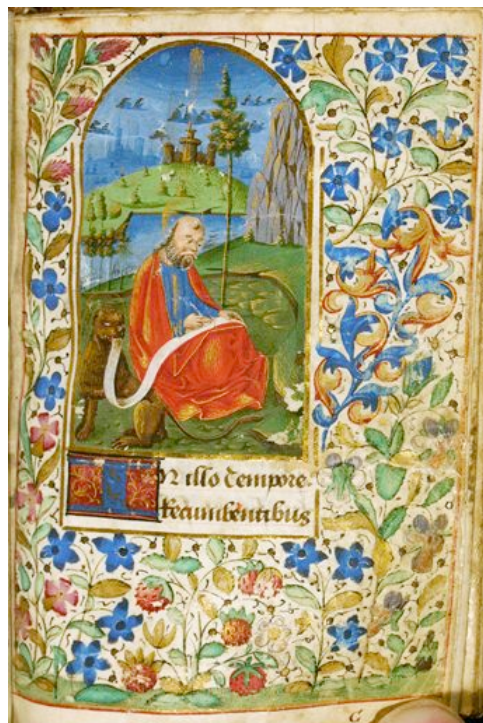 In illo tempore.
recumbentibus